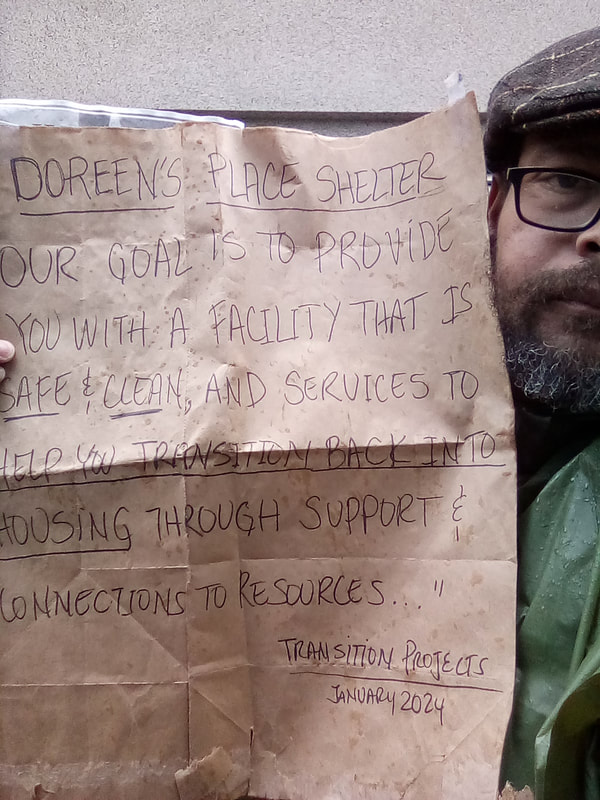 DOREEN'S PLACE SHELTER
OUR GOAL IS TO PROVIDE
YOU WITH A FACILITY THAT IS
SAFE & CLEAN, AND SERVICES TO
HELP YOU TRANSITION BACK INTO
HOUSING THROUGH SUPPORT &
CONNECTIONS TO RESOURCES..."
TRANSITION PROJECTS
JANUARY 2024